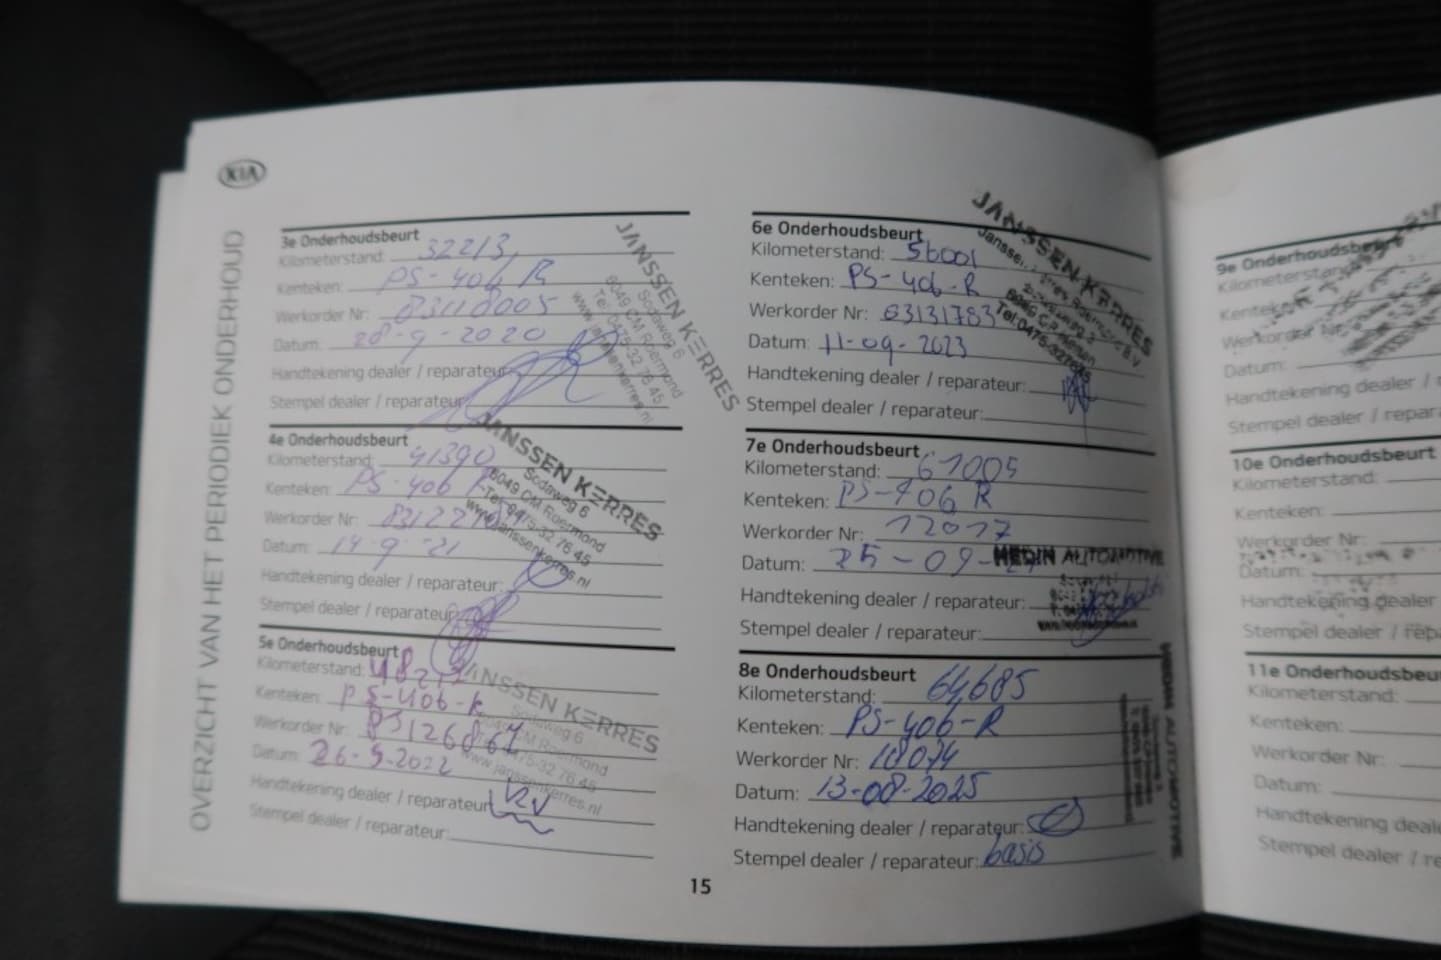 KIA
OVERZICHT VAN HET PERIODIEK ONDERHOUD
3e Onderhoudsbeurt
Kilometerstand: 32213
Kenteken: PS-406 R
Werkorder Nr: 83118005
Datum: 28-9-2020
Handtekening dealer / reparateur:
Stempel dealer / reparateur:
JANSSEN KERRES
Sodaweg 6
6049 CM Roermond
Tel. 0475-32 76 45
www.janssenkerres.nl
4e Onderhoudsbeurt
Kilometerstand: 41390
Kenteken: PS-406
Werkorder Nr:
Datum: 14-9-'21
Handtekening dealer / reparateur:
Stempel dealer / reparateur:
JANSSEN KERRES
Sodaweg 6
6049 CM Roermond
Tel. 0475-32 76 45
www.janssenkerres.nl
5e Onderhoudsbeurt
Kilometerstand:
Kenteken: PS-406-R
Werkorder Nr:
Datum: 2022
Handtekening dealer / reparateur:
Stempel dealer / reparateur:
JANSSEN KERRES
Sodaweg 6
6049 CM Roermond
Tel. 0475-32 76 45
www.janssenkerres.nl
6e Onderhoudsbeurt
Kilometerstand: 56001
Kenteken: PS-406-R
Werkorder Nr: 63131783
Datum: 11-09-2023
Handtekening dealer / reparateur:
Stempel dealer / reparateur:
JANSSEN KERRES
7e Onderhoudsbeurt
Kilometerstand: 61005
Kenteken: PS-406 R
Werkorder Nr: 12017
Datum: 25-09-
Handtekening dealer / reparateur:
Stempel dealer / reparateur:
HEDIN AUTOMOTIVE
8e Onderhoudsbeurt
Kilometerstand: 64685
Kenteken: PS-406-R
Werkorder Nr: 18074
Datum: 13-08-2025
Handtekening dealer / reparateur:
Stempel dealer / reparateur: basis
HEDIN AUTOMOTIVE
15
9e Onderhoudsbeurt
Kilometerstand
Kenteken
Werkorder Nr
Datum:
Handtekening dealer /
Stempel dealer /
10e Onderhoudsbeurt
Kilometerstand:
Kenteken:
Werkorder Nr:
Datum:
Handtekening dealer
Stempel dealer /
11e
Kilometerstand:
Kenteken:
Werkorder Nr:
Datum:
Handtekening
Stempel dealer /